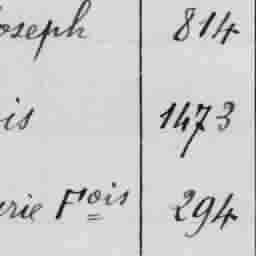 oseph 814
is 1473
rie Fois 294